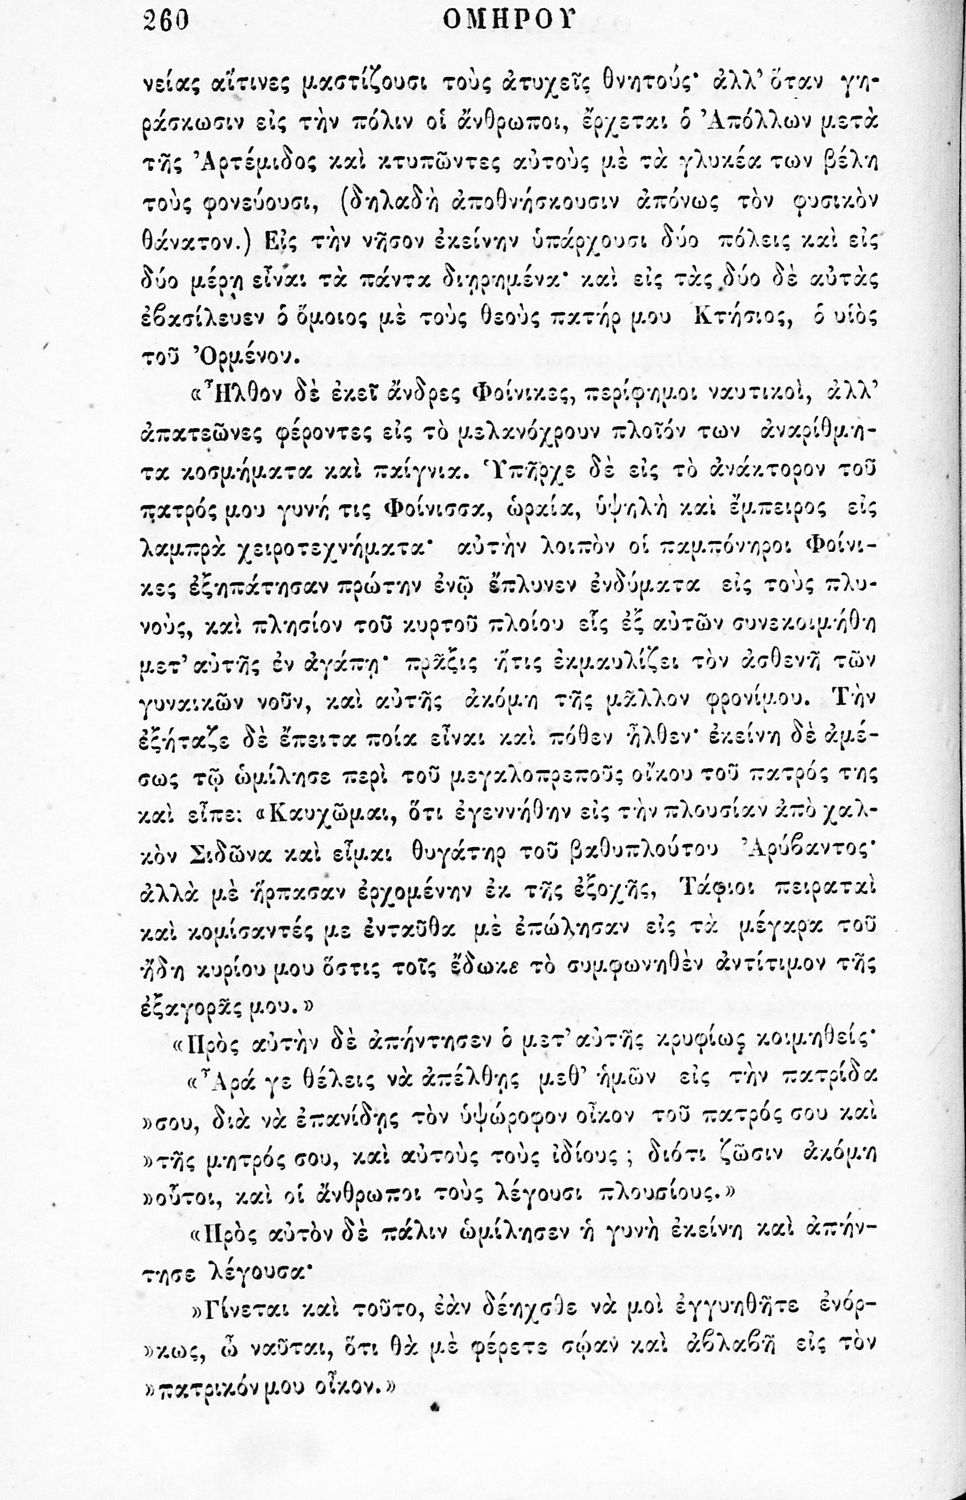 260 ΟΜΗΡΟΥ
νείας αἵτινες μαστίζουσι τοὺς ἀτυχεῖς θνητούς· ἀλλ’ ὅταν γη-
ράσκωσιν εἰς τὴν πόλιν οἱ ἄνθρωποι, ἔρχεται ὁ Ἀπόλλων μετὰ
τῆς Ἀρτέμιδος καὶ κτυπῶντες αὐτοὺς μὲ τὰ γλυκέα των βέλη
τοὺς φονεύουσι, (δηλαδὴ ἀποθνήσκουσιν ἀπόνως τὸν φυσικὸν
θάνατον.) Εἰς τὴν νῆσον ἐκείνην ὑπάρχουσι δύο πόλεις καὶ εἰς
δύο μέρη εἶναι τὰ πάντα διῃρημένα· καὶ εἰς τὰς δύο δὲ αὐτὰς
ἐβασίλευεν ὁ ὅμοιος μὲ τοὺς θεοὺς πατήρ μου Κτήσιος, ὁ υἱὸς
τοῦ Ὀρμένου.
«Ἦλθον δὲ ἐκεῖ ἄνδρες Φοίνικες, περίφημοι ναυτικοὶ, ἀλλ’
ἀπατεῶνες φέροντες εἰς τὸ μελανόχρουν πλοῖόν των ἀναρίθμη-
τα κοσμήματα καὶ παίγνια. Ὑπῆρχε δὲ εἰς τὸ ἀνάκτορον τοῦ
πατρός μου γυνή τις Φοίνισσα, ὡραία, ὑψηλὴ καὶ ἔμπειρος εἰς
λαμπρὰ χειροτεχνήματα· αὐτὴν λοιπὸν οἱ παμπόνηροι Φοίνι-
κες ἐξηπάτησαν πρώτην ἐνῷ ἔπλυνεν ἐνδύματα εἰς τοὺς πλυ-
νοὺς, καὶ πλησίον τοῦ κυρτοῦ πλοίου εἷς ἐξ αὐτῶν συνεκοιμήθη
μετ’ αὐτῆς ἐν ἀγάπῃ· πρᾶξις ἥτις ἐκμαυλίζει τὸν ἀσθενῆ τῶν
γυναικῶν νοῦν, καὶ αὐτῆς ἀκόμη τῆς μᾶλλον φρονίμου. Τὴν
ἐξήταζε δὲ ἔπειτα ποία εἶναι καὶ πόθεν ἦλθεν· ἐκείνη δὲ ἀμέ-
σως τῷ ὡμίλησε περὶ τοῦ μεγαλοπρεποῦς οἴκου τοῦ πατρός της
καὶ εἶπε: «Καυχῶμαι, ὅτι ἐγεννήθην εἰς τὴν πλουσίαν ἀπὸ χαλ-
κὸν Σιδῶνα καὶ εἶμαι θυγάτηρ τοῦ βαθυπλούτου Ἀρύβαντος·
ἀλλὰ μὲ ἥρπασαν ἐρχομένην ἐκ τῆς ἐξοχῆς, Τάφιοι πειραταὶ
καὶ κομίσαντές με ἐνταῦθα μὲ ἐπώλησαν εἰς τὰ μέγαρα τοῦ
ἤδη κυρίου μου ὅστις τοῖς ἔδωκε τὸ συμφωνηθὲν ἀντίτιμον τῆς
ἐξαγορᾶς μου.»
«Πρὸς αὐτὴν δὲ ἀπήντησεν ὁ μετ’ αὐτῆς κρυφίως κοιμηθείς·
«Ἆρά γε θέλεις νὰ ἀπέλθῃς μεθ’ ἡμῶν εἰς τὴν πατρίδα
»σου, διὰ νὰ ἐπανίδῃς τὸν ὑψώροφον οἶκον τοῦ πατρός σου καὶ
»τῆς μητρός σου, καὶ αὐτοὺς τοὺς ἰδίους ; διότι ζῶσιν ἀκόμη
»οὗτοι, καὶ οἱ ἄνθρωποι τοὺς λέγουσι πλουσίους.»
«Πρὸς αὐτὸν δὲ πάλιν ὡμίλησεν ἡ γυνὴ ἐκείνη καὶ ἀπήν-
τησε λέγουσα·
»Γίνεται καὶ τοῦτο, ἐὰν δέηχσθε νὰ μοὶ ἐγγυηθῆτε ἐνόρ-
»κως, ὦ ναῦται, ὅτι θὰ μὲ φέρετε σῴαν καὶ ἀβλαβῆ εἰς τὸν
»πατρικόν μου οἶκον.»